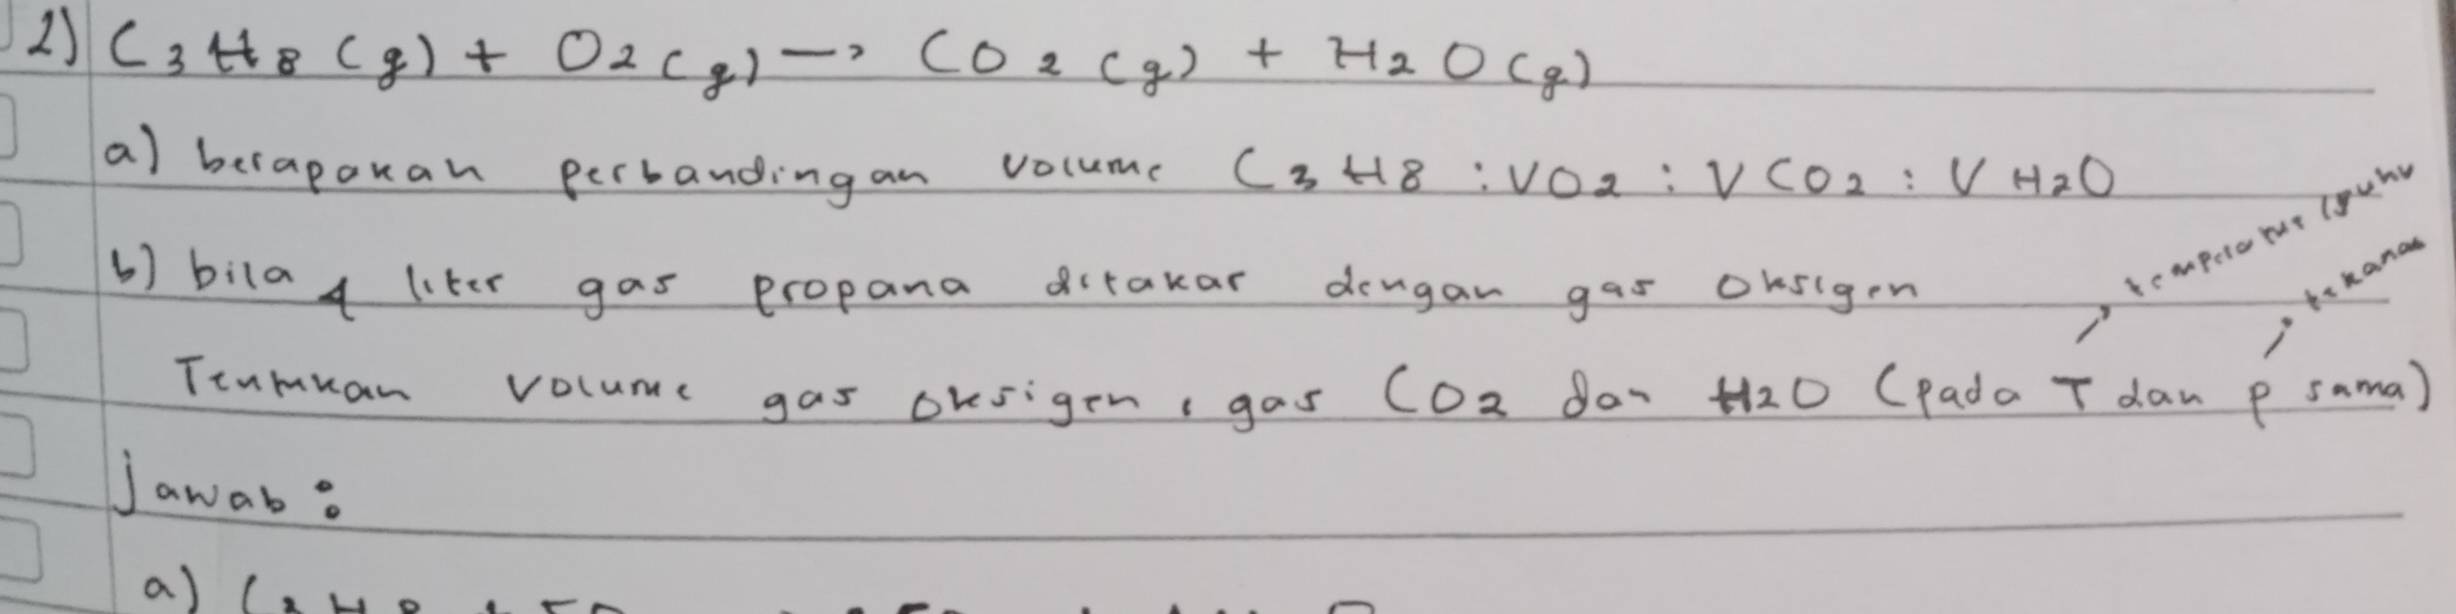 2) C3H8 (g) + O2 (g) → CO2 (g) + H2O (g)
a) berapakah perbandingan volume C3H8 : VO2 : VCO2 : VH2O
b) bila 4 liter gas propana ditakar dengan gas oksigen
temperatur (suhu
tekanan
Tentukan volume gas oksigen, gas CO2 dan H2O (pada T dan P sama)
Jawab :
a) C3H8 + 5O